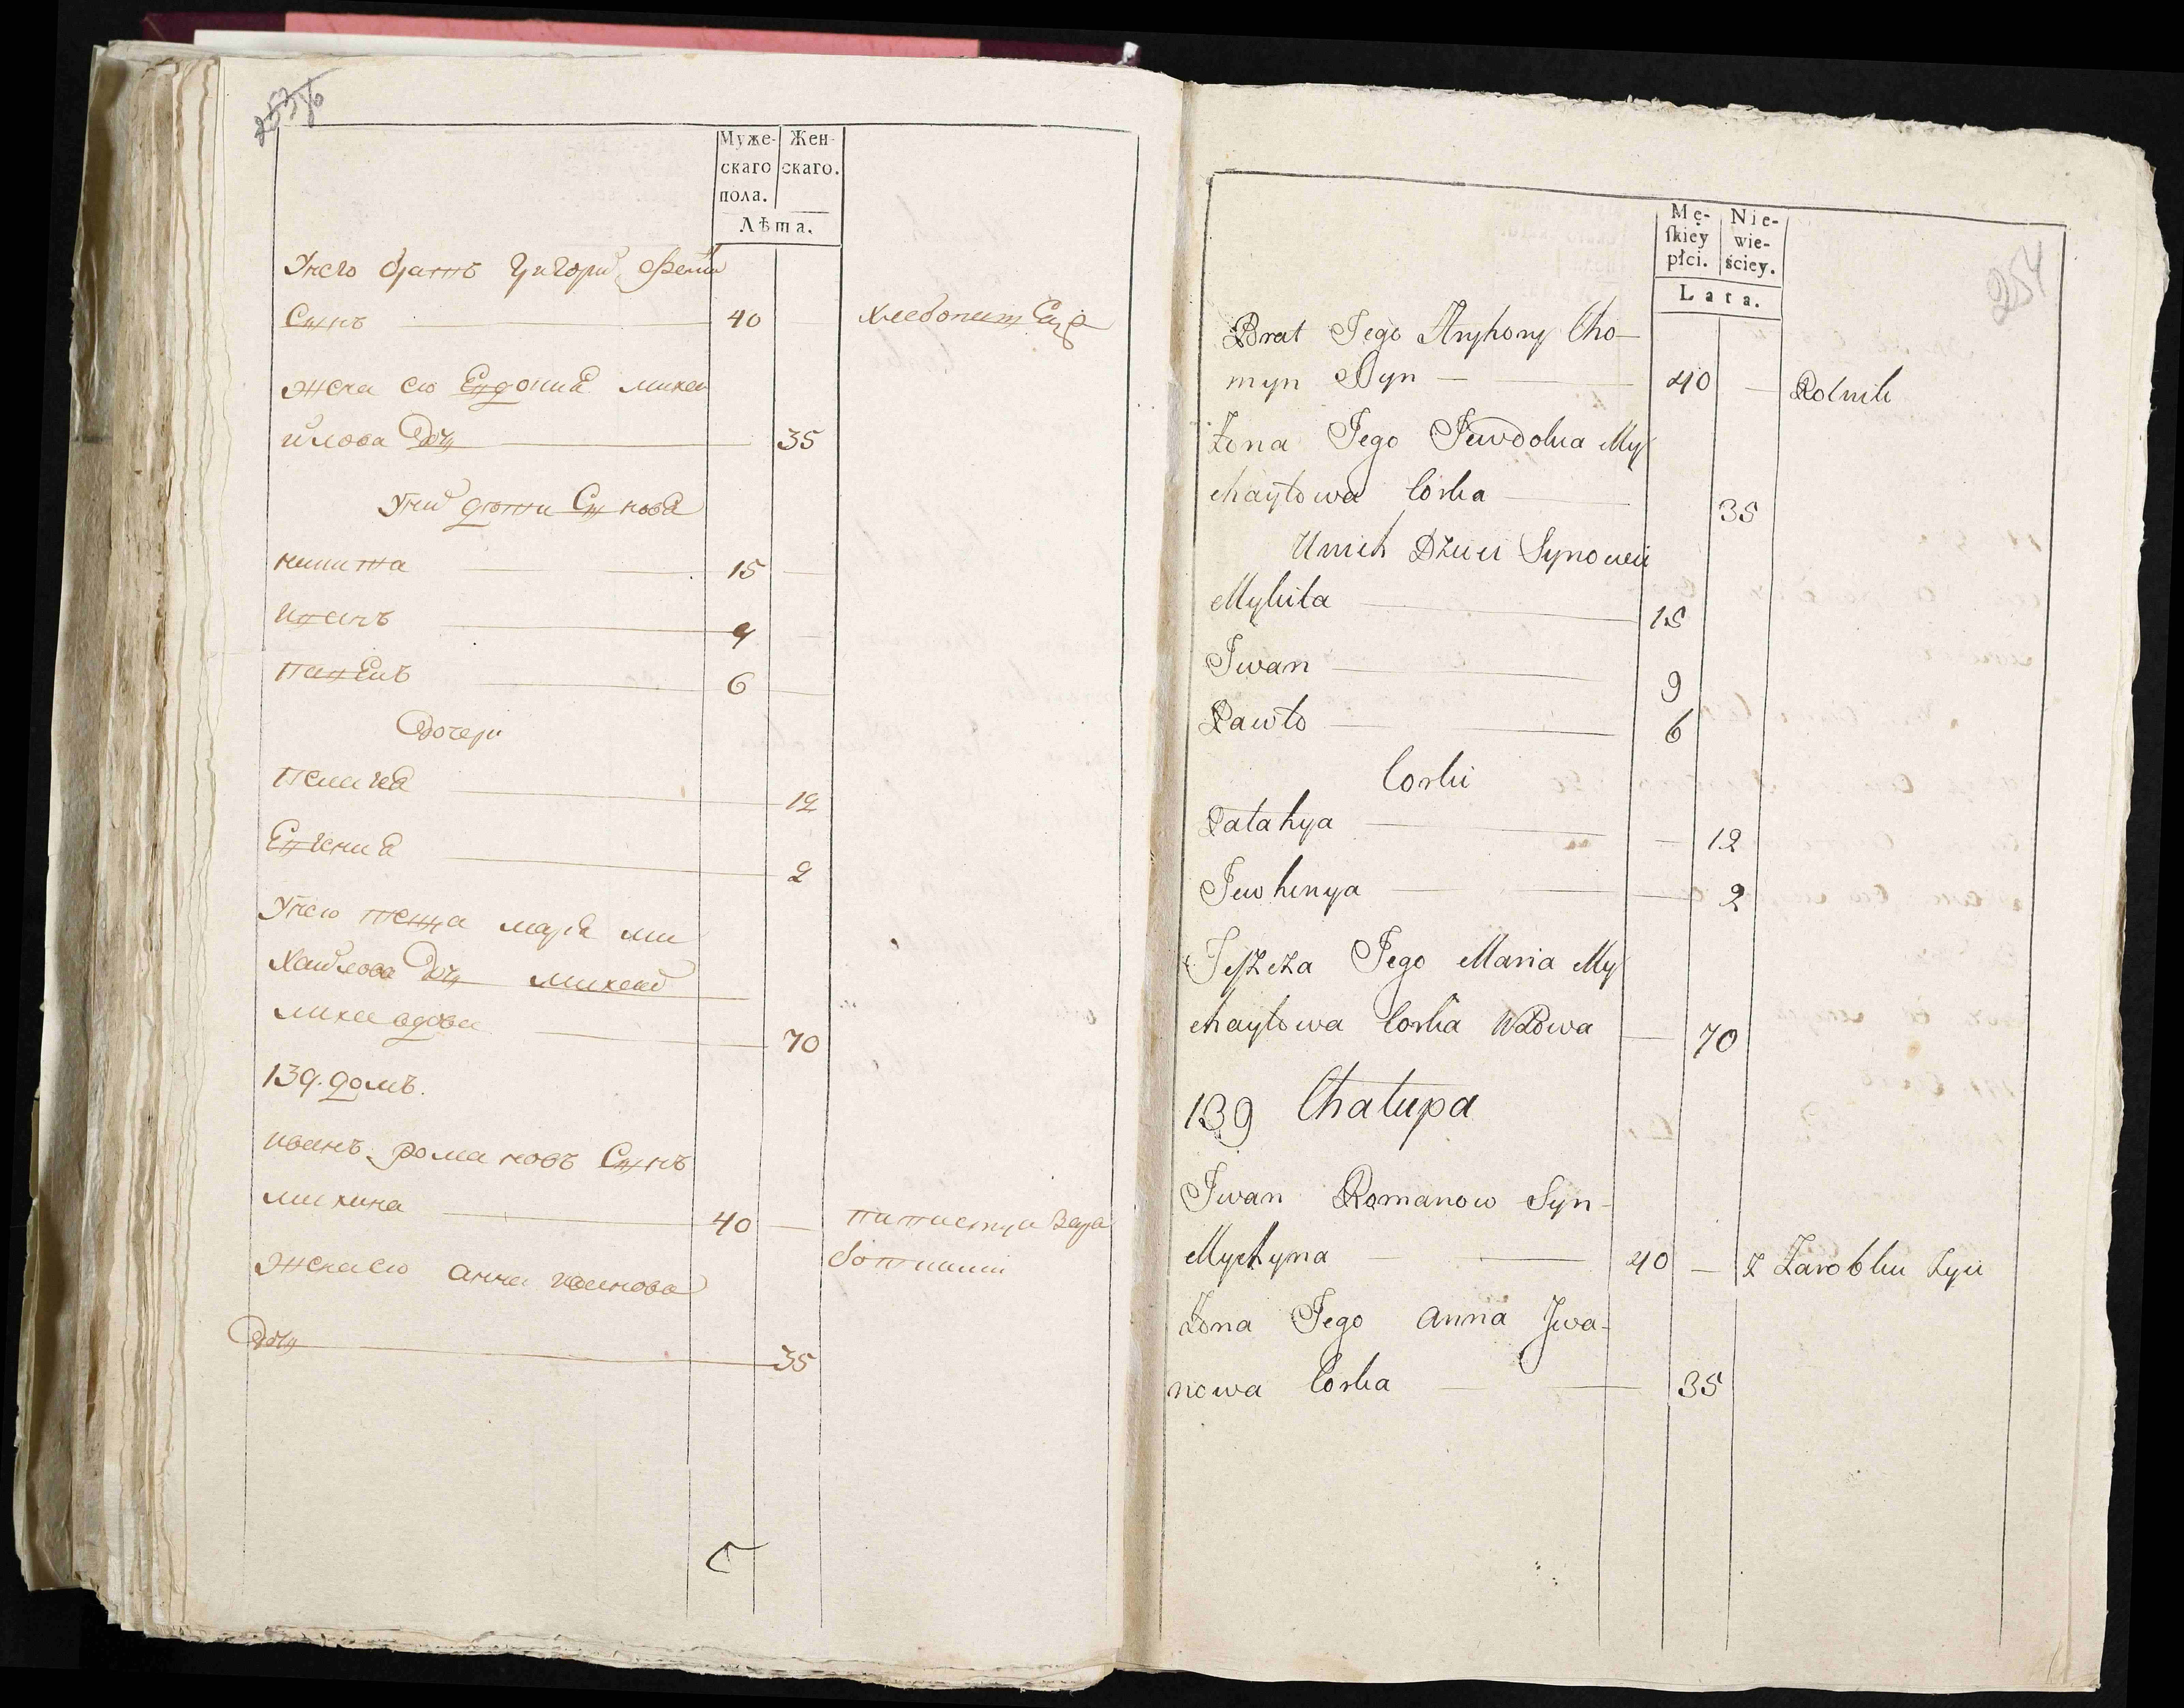 Муже- Жен-
скаго скаго.
пола.
Лѣта.
Унего братъ Григори Фоминъ
Сынъ 40 хлебопашец
жена его Евдокиа михаи
илова Дочь 35
Уних дети Сыновья
никита 15
иванъ 9
павелъ 6
Дочери
Пелагиа 12
Евгениа 2
Унего теща мария ми
хайлова Дочь
вдова 70
139. домъ.
иванъ романовъ Сынъ
михина 40 питается зара
ботками
жена его анна иванова
Дочь 35
254
Mę- Nie-
skiey wie-
płci. ściey.
Lata.
Brat Jego Hryhory Cho-
myn Syn 40 Rolnik
Żona Jego Jewdokia My
chayłowa Corka 35
Unich Dzieci Synowie
Mykita 15
Iwan 9
Pawło 6
Corki
Palahya 12
Jewhenya 2
Teszcza Jego Maria My
chayłowa Corka Wdowa 70
139 Chałupa
Iwan Romanow Syn-
Mychyna 40 z Zarobku żyie
Żona Jego Anna Iwa-
nowa Corka 35